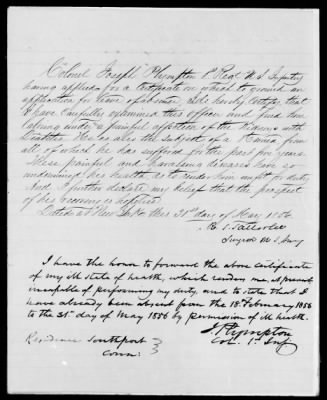 Colonel Joseph Plympton 1st Regt U S Infantry
having applied for a Certificate on which to ground an
application for leave of absence I do hereby Certify that
I have Carefully examined this officer and find him
laboring under a painful affection of the
He is also the subject of a Hernia from
all of which he has suffered for the past five years
These painful and harassing diseases have so
undermined his health, as to render him unfit for duty.
And I further declare my belief that the prospect
of his recovery is
Dated at New York this 31st day of May 1856
Surgeon U. S. Army
I have the honor to forward the above certificate
of my ill state of health, which renders me, at present
incapable of performing my duty, and to state that I
have already been absent from the 18th February 1856
to the 31st day of May 1856 by permission of ill health.
J. Plympton
Col. 1st Inf
Residence Southport
Conn: